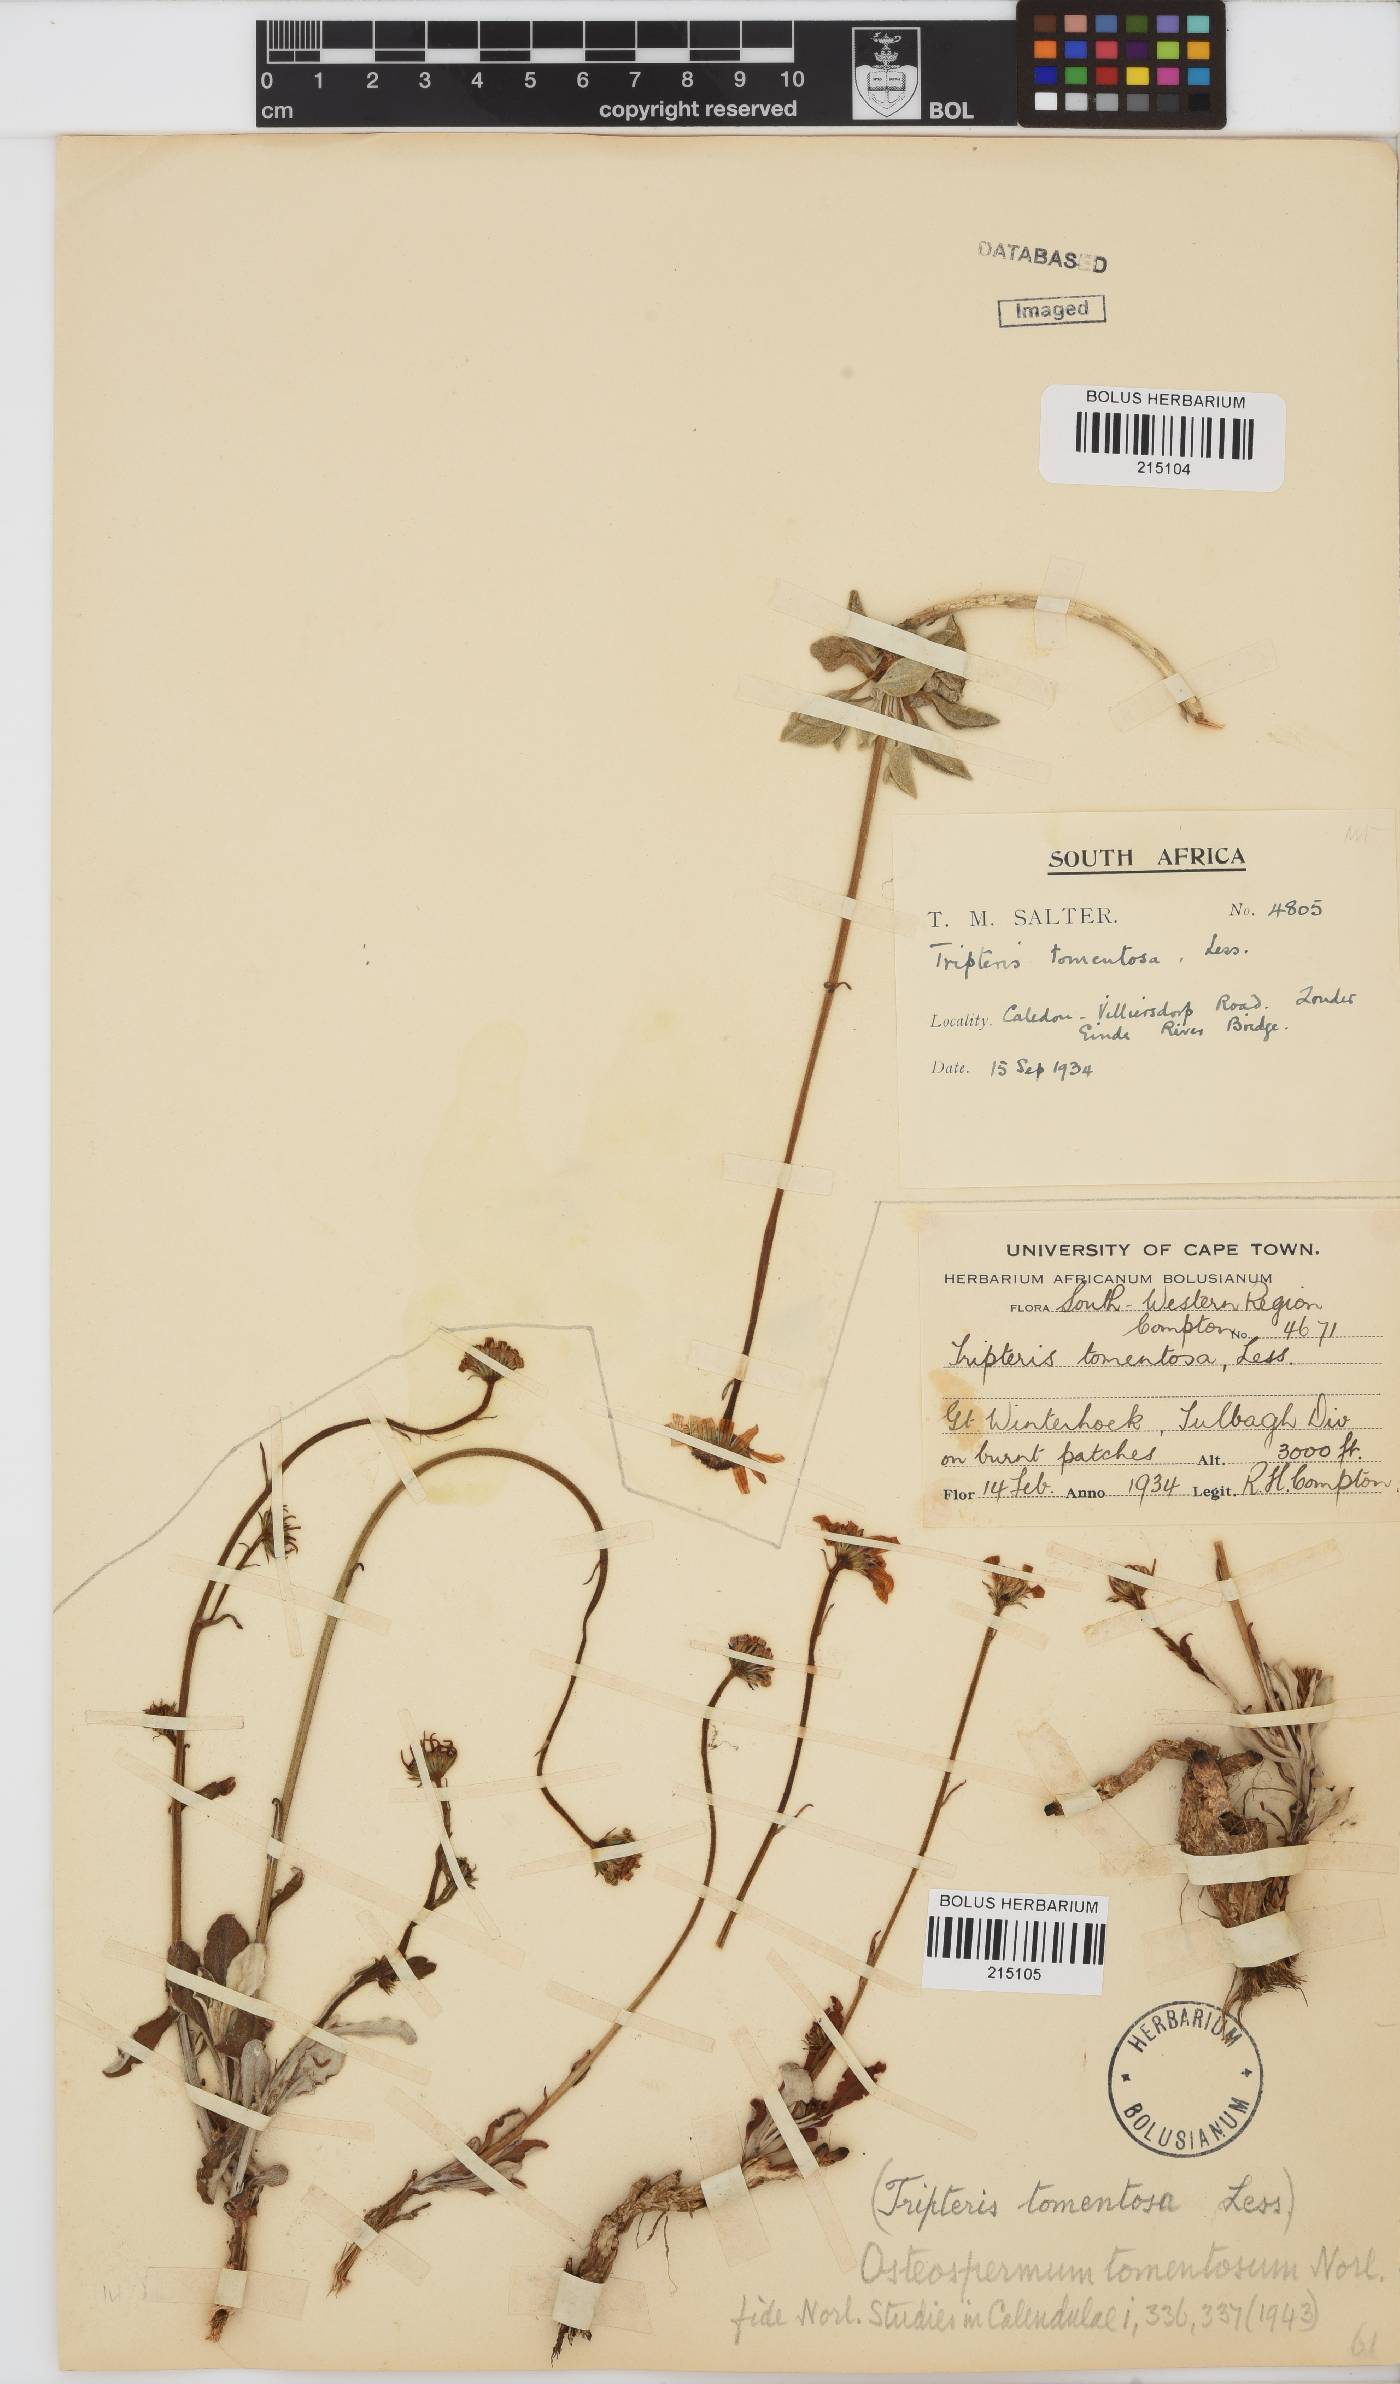 0 1 2 3 4 5 6 7 8 9 10
cm copyright reserved BOL
DATABASED
Imaged
BOLUS HERBARIUM
215104
SOUTH AFRICA
T. M. SALTER. No. 4805
Tripteris tomentosa, Less.
Locality. Caledon - Villiersdorp Road. Zonder
Einde River Bridge.
Date. 15 Sep 1934
UNIVERSITY OF CAPE TOWN.
HERBARIUM AFRICANUM BOLUSIANUM
FLORA South-Western Region
Compton No. 4671
Tripteris tomentosa, Less.
Gt Winterhoek, Tulbagh Div
on burnt patches Alt. 3000 ft.
Flor 14 Feb. Anno 1934 Legit. R.H. Compton.
BOLUS HERBARIUM
215105
HERBARIUM
BOLUSIANUM
(Tripteris tomentosa Less)
Osteospermum tomentosum Norl.
fide Norl. Studies in Calendulae i, 336, 337 (1943)
61